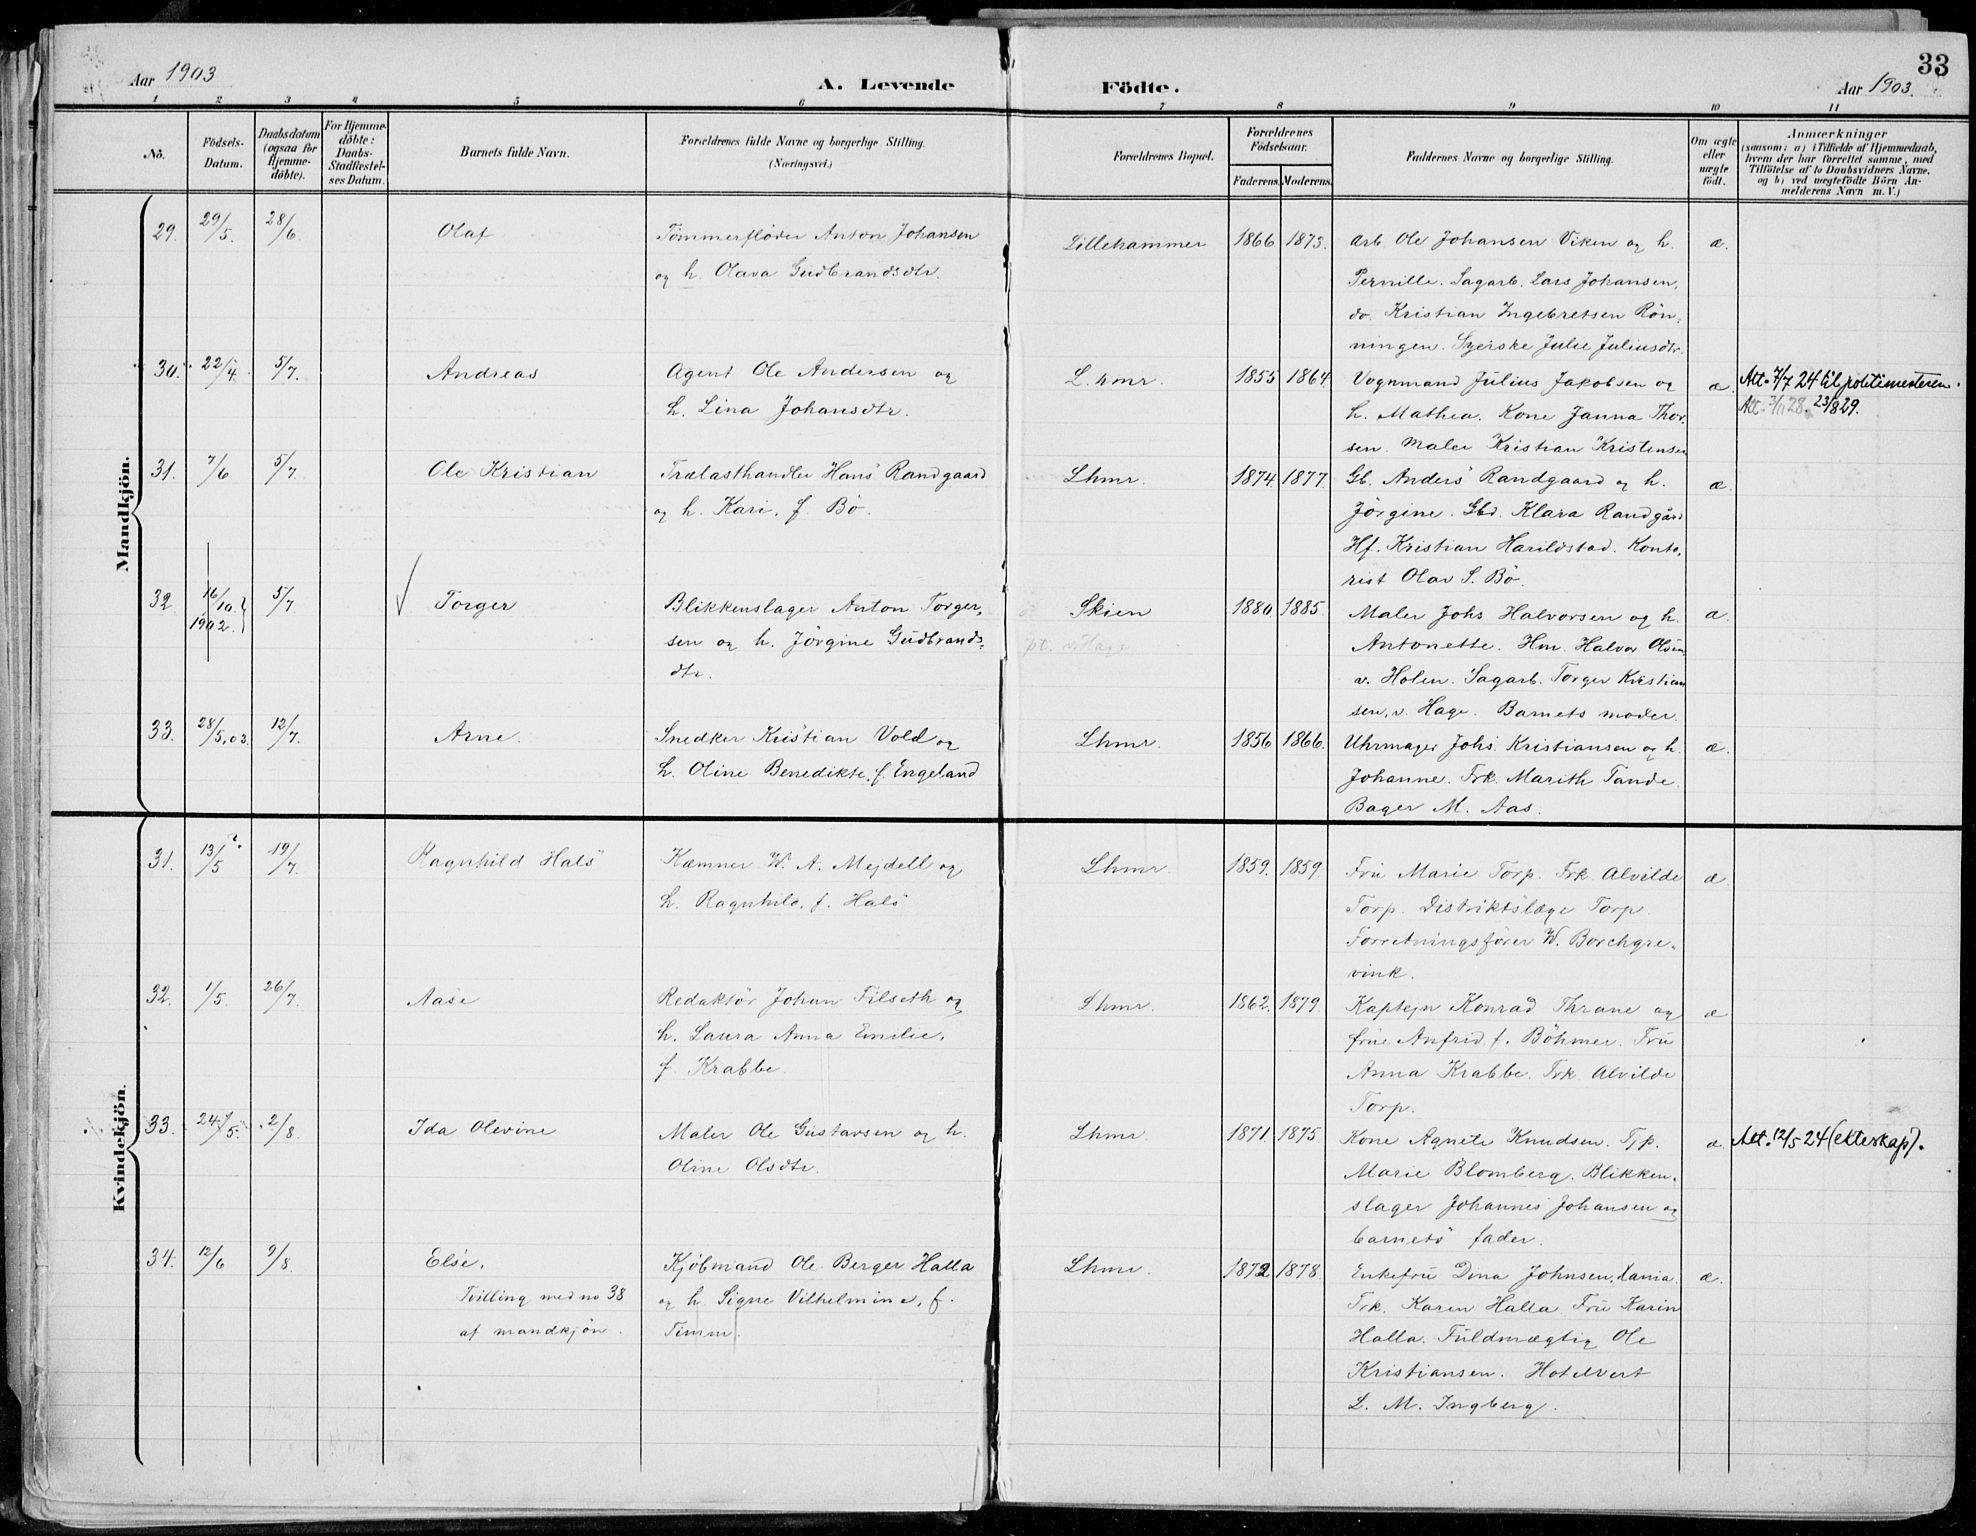 33
Aar 1903
A. Levende Födte.
Aar 1903.
1 2 3 4 5 6 7 8 9 10 11
No.
Födsels-Datum.
Daabsdatum (ogsaa for Hjemme-döbte).
For Hjemme-döbte: Daabs-Stadfæstel-ses Datum.
Barnets fulde Navn.
Forældrenes fulde Navne og borgerlige Stilling.
(Næringsvei.)
Forældrenes Bopæl.
Forældrenes Födselsaar.
Faderens. Moderens.
Faddernes Navne og borgerlige Stilling.
Om ægte eller uægte födt.
Anmærkninger
(saasom: a) i Tilfælde af Hjemmedaab,
hvem der har forrettet samme, med
Tilföielse af to Daabsvidners Navne,
og b) ved uægtefödte Börn An-
melderens Navn m. V.)
Mandkjön.
29. 29/5. 28/6 Olaf Tömmerflöder Anton Johansen Lillehammer 1866 1873. Arb. Ole Johansen Viken og h. æ.
og h. Olava Gudbrandsdtr. Pernille. Sagarb. Lars Johansen,
do. Kristian Ingebretsen Rön-
ningen. Syerske Julie Juliusdtr.
30. 22/4. 5/7. Andreas Agent Ole Andersen og L.hmr. 1855 1864 Vognmand Julius Jakobsen og æ. Att. 7/7 24 til politimesteren.
h. Lina Johansdtr. h. Mathea. Kone Janna Thor- Att. 3/11 28. 23/8 29.
sen. Maler Kristian Kristensen
31. 7/6 5/7. Ole Kristian Trælasthandler Hans Randgaard Lhmr. 1874. 1877. Gb. Anders Randgaard og h. æ.
og h. Kari, f. Bö. Jörgine. Gbd. Klara Randgård
Hf. Kristian Harildstad. Konto-
rist Olav S. Bö.
32. 16/10. 1902. 5/7 Torger Blikkenslager Anton Torger- Skien 1880. 1885. Maler Johs Halvorsen og h. æ.
sen og h. Jörgine Gudbrands- pt. v. Hage Antonette. Hm. Halvor Olsen
dtr. v. Holen. Sagarb. Torger Kristian
sen, v. Hage. Barnets moder.
33. 28/5.03. 12/7. Arne. Snedker Kristian Vold og Lhmr. 1856 1866. Uhrmager Johs. Kristiansen og h. æ.
h. Oline Benedikte, f. Engeland Johanne. Frk. Marith Tande.
Bager M. Aas.
Kvindekjön.
31. 13/5 ? 19/7. Ragnhild Hals Kæmner W. A. Mejdell og Lhmr. 1859. 1859. Fru Marie Torp. Frk. Alvilde æ.
h. Ragnhild, f. Hals Torp. Distriktslæge Torp.
Forretningsförer W. Borchgre-
vink.
32. 1/5. 26/7 Aase Redaktör Johan Filseth og Lhmr. 1862. 1879. Kaptejn Konrad Thrane og æ
h. Laura Anna Emilie, frue Anfrid, f. Böhmer. Fru
f. Krabbe. Anna Krabbe. Frk. Alvilde
Torp.
33. 24/5. 2/8. Ida Olevine Maler Ole Gustavsen og h. Lhmr. 1871. 1875. Kone Agnete Knudsen. Tjp. æ. Att. 12/5 24 (ekteskap).
Oline Olsdtr. Marie Blomberg. Blikken-
slager Johannes Johansen og
barnets fader.
34. 12/6 9/8. Else. Kjöbmand Ole Berger Halla Lhmr. 1872 1878 Enkefru Dina Johnsen, Xania. æ.
Tvilling med no 38 og h. Signe Vilhelmine, f. Frk. Karen Halla. Fru Karin
af mandkjön. Timm. Halla. Fuldmægtig Ole
Kristiansen. Hotelvert
L. M. Ingberg.